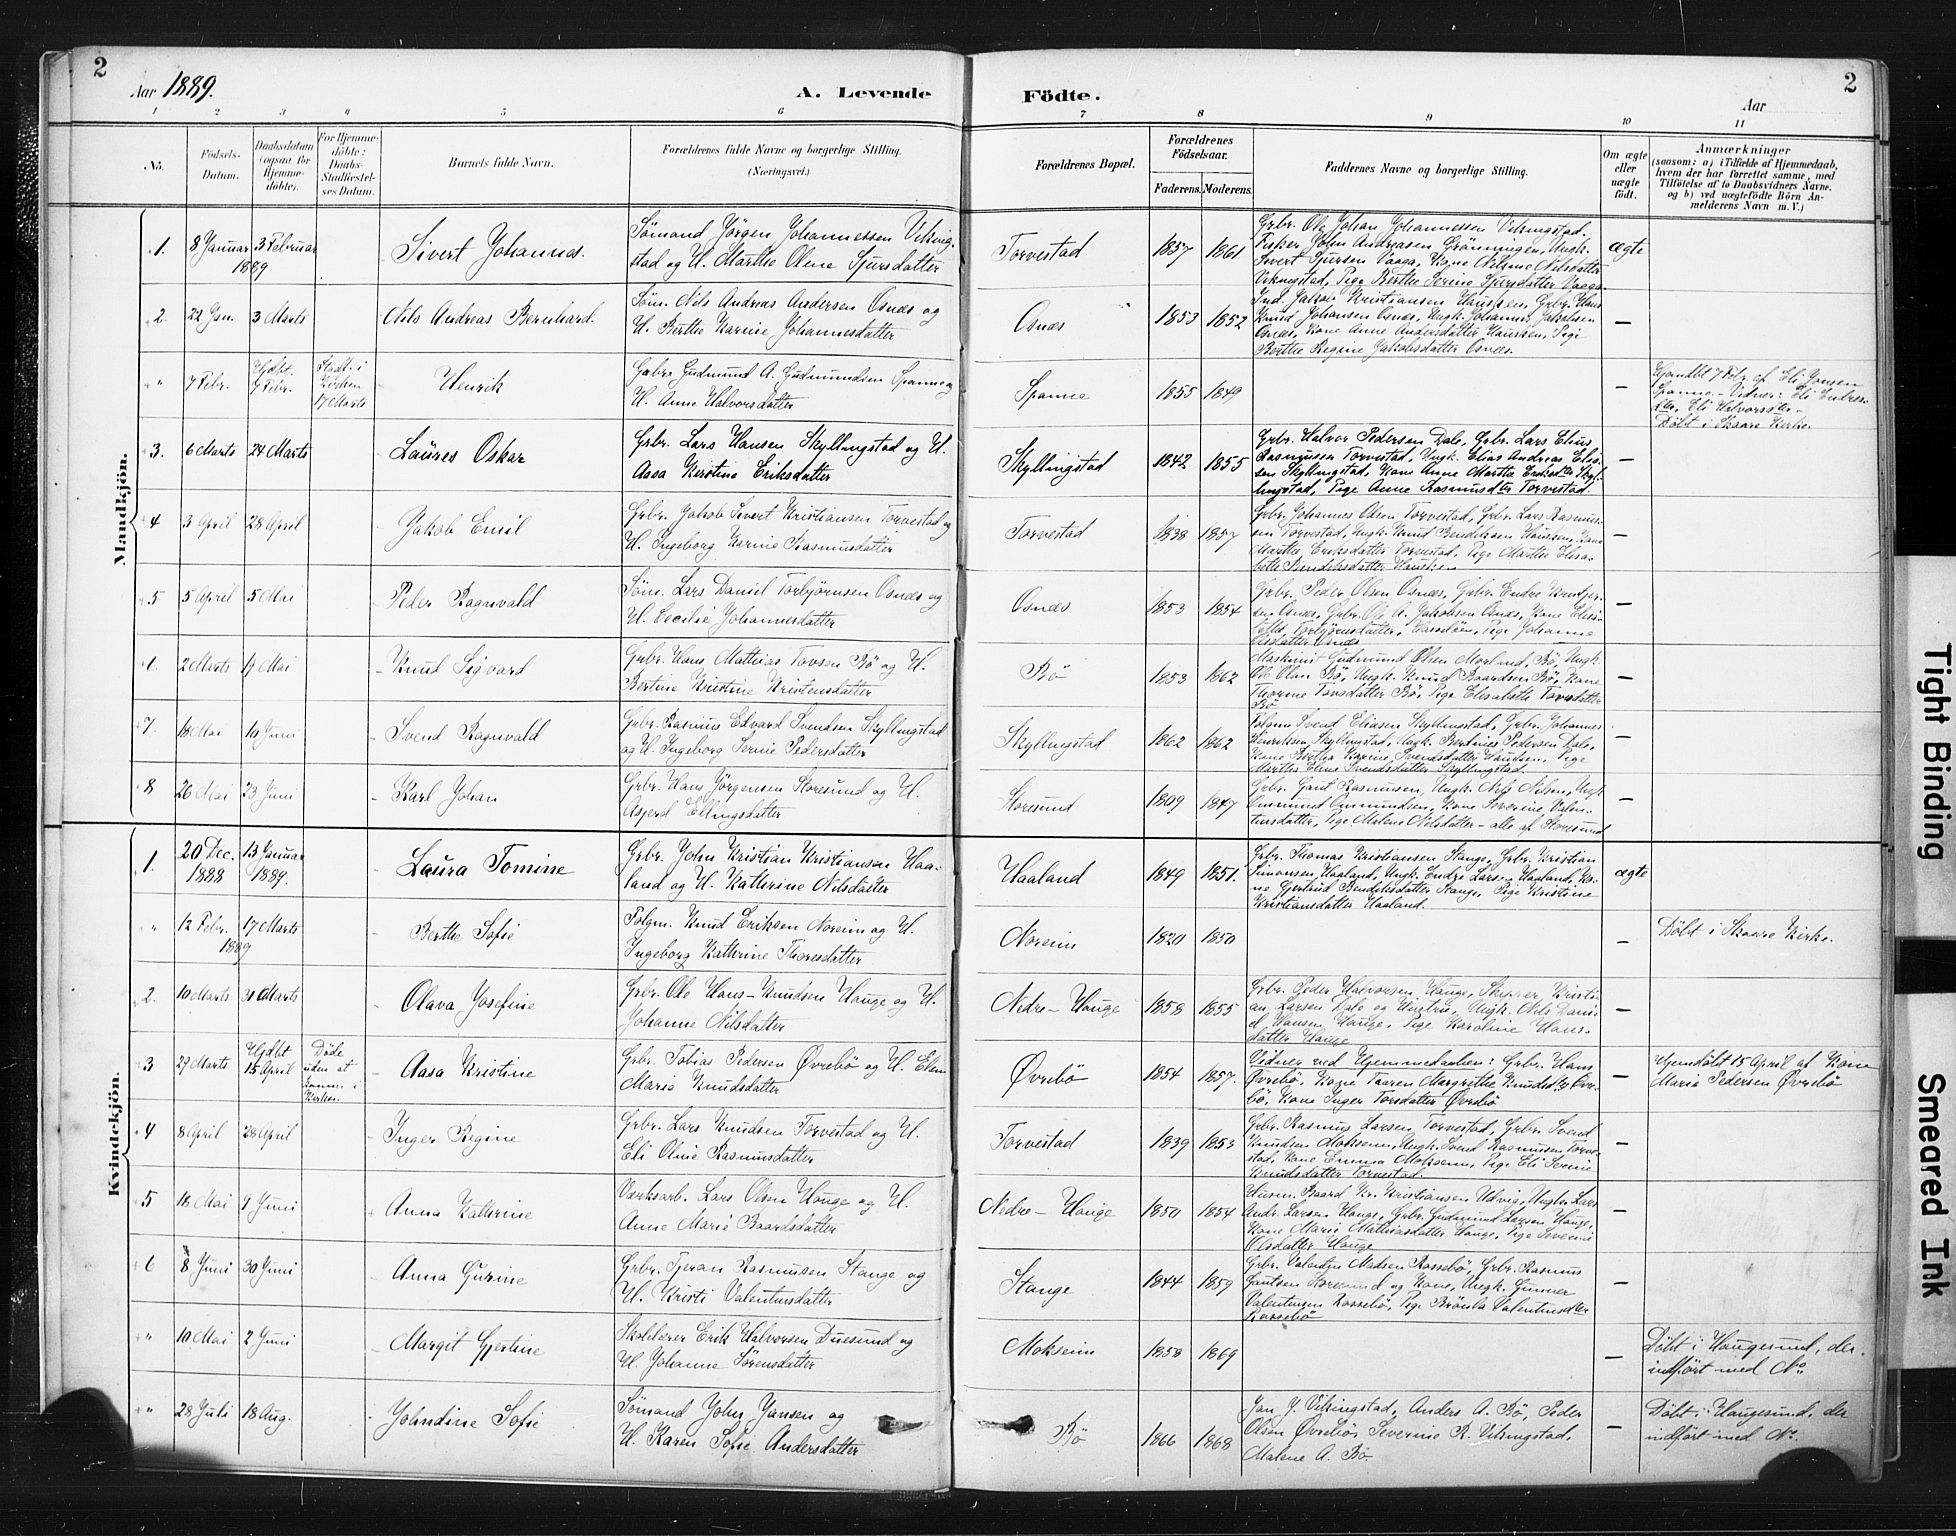 2
Aar 1889.
A. Levende
Födte.
Aar
2
1 2 3 4 5 6 7 8 9 10 11
No.
Födsels-
Datum.
Daabsdatum
(ogsaa for
Hjemme-
döbte).
For Hjemme-
döbte:
Daabs-
Stadfæstel-
ses Datum.
Barnets fulde Navn.
Forældrenes fulde Navne og borgerlige Stilling.
(Næringsvei.)
Forældrenes Bopæl.
Forældrenes
Födselsaar.
Faderens. Moderens.
Faddernes Navne og borgerlige Stilling.
Om ægte
eller
uægte
födt.
Anmærkninger
(saasom: a) i Tilfælde af Hjemmedaab,
hvem der har forrettet samme, med
Tilföielse af to Daabsvidners Navne,
og b) ved uægtefödte Börn An-
melderens Navn m. V.)
Mandkjön.
1. 8 Januar 3 Februar
1889
Sivert Johannes.
Sömand Jörgen Johannessen Viking-
stad og H. Marthe Oline Sjursdatter
Torvestad 1857 1861
Grbr. Ole Johan Johannessen Vikingstad.
Fisker John Andreasen Grönningen, Ungk.
Sivert Sjursen Vaaga, Kone Nilsine Nilsdatter
Vikingstad, Pige Berthe Serine Sjursdatter Vaaga.
ægte
2. 22 Jan. 3 Marts
Nils Andreas Bernhard.
Söm. Nils Andreas Andersen Osnæs og
H. Berthe Karine Johannesdatter
Osnæs 1853 1852
Ind. Jakob Kristiansen Hausken, Grbr. Hans
Knud Johansen Osnæs, Ungk. Johannes Jakobsen
Osnæs, Kone Anne Andersdatter Hausken, Pige
Berthe Regine Jakobsdatter Osnæs.
—
" 7 Febr. Hjdbt. 7 Febr. Stadf. i Kirken 17 Marts
Henrik
Gabr. Gudmund A. Gudmundsen Spanne og
H. Anne Halvorsdatter
Spanne 1855 1849
—
Hjemdbt 7 Febr. af Eli Jonsen
Spanne. – Vidner: Eli Endres-
dtr, Eli Halvorsdtr –
Döbt i Skaare Kirke.
3. 6 Marts 24 Marts
Laures Oskar
Grbr. Lars Hansen Skyllingstad og H.
Aasa Kristine Eriksdatter
Skyllingstad 1842 1855
Grbr. Halvor Pedersen Dale, Grbr. Lars Elius
Rasmussen Torvestad, Ungk. Elias Andreas Elia-
sen Skyllingstad, Kone Anne Marthe Eriksdtr Skyl-
lingstad, Pige Anne Rasmusdtr Torvestad.
—
4 3 April 28 April
Jakob Emil
Grbr. Jakob Sivert Kristiansen Torvestad og
H. Ingeborg Karine Rasmusdatter
Torvestad 1838 1857
Grbr. Johannes Olsen Torvestad, Grbr. Lars Rasmus-
sen Torvestad, Ungk. Knud Bendiksen Hausken, Kone
Marthe Eriksdatter Torvestad, Pige Marthe Elisa-
beth Bendiksdatter Hausken
—
5 5 April 5 Mai
Peder Ragnvald
Söm. Lars Daniel Torbjörnsen Osnæs og
H. Cecilie Johannesdatter
Osnæs 1853 1854
Grbr. Peder Olsen Osnæs, Grbr. Endre
sen Osnæs, Grbr. Ole A. Jakobsen Osnæs, Kone Elisa-
Torbjörnsdatter, Pige Johanne
Osnæs
—
2 Marts 19 Mai
Knud Sigvard
Grbr. Hans Mathias Tovsen Bö og H.
Bertine Kristine Kristensdatter
Bö 1853 1862
Maskinist Gudmund Olsen Morland, Bö, Ungk.
Ole Olsen Bö, Ungk. Knud Baardsen Bö, Kone
Thorine Tovsdatter Bö, Pige Elisabeth Tovsdatter
Bö
—
7. 18 Mai 10 Juni
Svend Ragnvald
Grbr. Rasmus Edvard Svendsen Skyllingstad
og H. Ingeborg Serine Pedersdatter
Skyllingstad 1862 1862
Folgm. Svend Eliasen Skyllingstad, Grbr. Johannes
Henriksen Skyllingstad, Ungk. Bertinius Pedersen Dale,
Kone Bertha Karine Svendsdatter Hausken, Pige
Martha Eline Svendsdatter Skyllingstad.
—
8 26 Mai 23 Juni
Karl Johan
Grbr. Hans Jörgensen Storesund og H.
Asjerd Ellingsdatter
Storesund 1809 1847
Grbr. Gaut Rasmussen, Ungk. Nils Nilsen, Ungk.
Ommund Ommundsen, Kone Severine Valen-
tinsdatter, Pige Malene Nilsdatter – alle af Storesund
—
Kvindekjön.
1. 20 Dec. 1888 13 Januar 1889.
Laura Tomine
Grbr. John Kristian Kristiansen Haa-
land og H. Kathrine Nilsdatter
Haaland 1849 1851.
Grbr. Thomas Kristiansen Stange, Grbr. Kristian
Simonsen Haaland, Ungk. Endre Larsen Haaland, Ko-
ne Gjertrud Bendiksdatter Stange, Pige Kristine
Kristiansdatter Haaland.
ægte
" 12 Febr. 17 Marts
1889
Berthe Sofie
Folgm. Knud Eriksen Noreim og H.
Ingeborg Kathrine Thoresdatter
Noreim 1820 1850
—
Döbt i Skaare Kirke.
2. 10 Marts 31 Marts
Olava Josefine
Grbr. Ole Hans-Knudsen Hauge og H.
Johanne Nilsdatter
Nedre-Hauge 1858 1855
Grbr. Peder Halvorsen Hauge, Skipper Kristi-
an Larsen Dale og Hustru, Ungk. Nils Dani-
el Hansen Hauge, Pige Karoline Hans-
datter Hauge
—
3 29 Marts Hjdbt 15 April Döde uden at komme i Kirken.
Aasa Kristine
Grbr. Tobias Pedersen Øvrebö og H. Elen
Maria Knudsdatter
Øvrebö 1854 1857.
Vidner ved Hjemmedaaben: Grbr. Hans
Øvrebö, Kone Taaren Margrethe Knudsdtr Øvre-
bö, Kone Inger Torsdatter Øvrebö
—
Hjemdöbt 15 April af Kone
Marie Pedersen Øvrebö
4 8 April 28 April
Inger Regine
Grbr. Lars Knudsen Torvestad og H.
Eli Oline Rasmusdatter
Torvestad 1839 1853
Grbr. Rasmus Larsen, Torvestad, Grbr. Svend
Knudsen Moksem, Ungk. Svend Rasmussen Torve-
stad, Kone Emma Moksem, Pige Eli Serine
Knudsdatter Torvestad.
—
5 18 Mai 9 Juni
Anna Kathrine
Værksarb. Lars Olsen Hauge og H.
Anne Marie Baardsdatter
Nedre-Hauge 1850 1854
Husm. Baard Kr. Kristiansen Udvig, Ungk. Lars
Andr. Larsen Hauge, Grbr. Gudmund Larsen Hauge,
Kone Marie Mathiasdatter Hauge, Pige Severine
Olsdatter Hauge
—
6 8 Juni 30 Juni
Anna Gurine
Grbr. Tjeran Rasmusen Stange og
H. Kristi Valentinsdatter
Stange 1844 1859
Grbr. Valentin Madsen Rossebö, Grbr. Rasmus
Gautsen Storesund og Kone, Ungk. Gunner
Valentinsen Rossebö, Pige Brönla Valentinsdtr
Rossebö
—
" 10 Mai 2 Juni
Margit Gjertine
Skolelærer Erik Halvorsen Duesund og
H. Johanne Sörensdatter
Moksem 1858 1869
—
Döbt i Haugesund, der
indfört med No.
" 28 Juli 18 Aug.
Johndine Sofie
Sömand John Jansen og
H. Karen Sofie Andersdatter
Bö 1866 1868
Jan J. Vikingstad, Anders A. Bö, Peder
Olson Øvrebö, Severine R. Vikingstad,
Malene A. Bö
—
Döbt i Haugesund, der
indfört med No.
Tight Binding
Smeared Ink